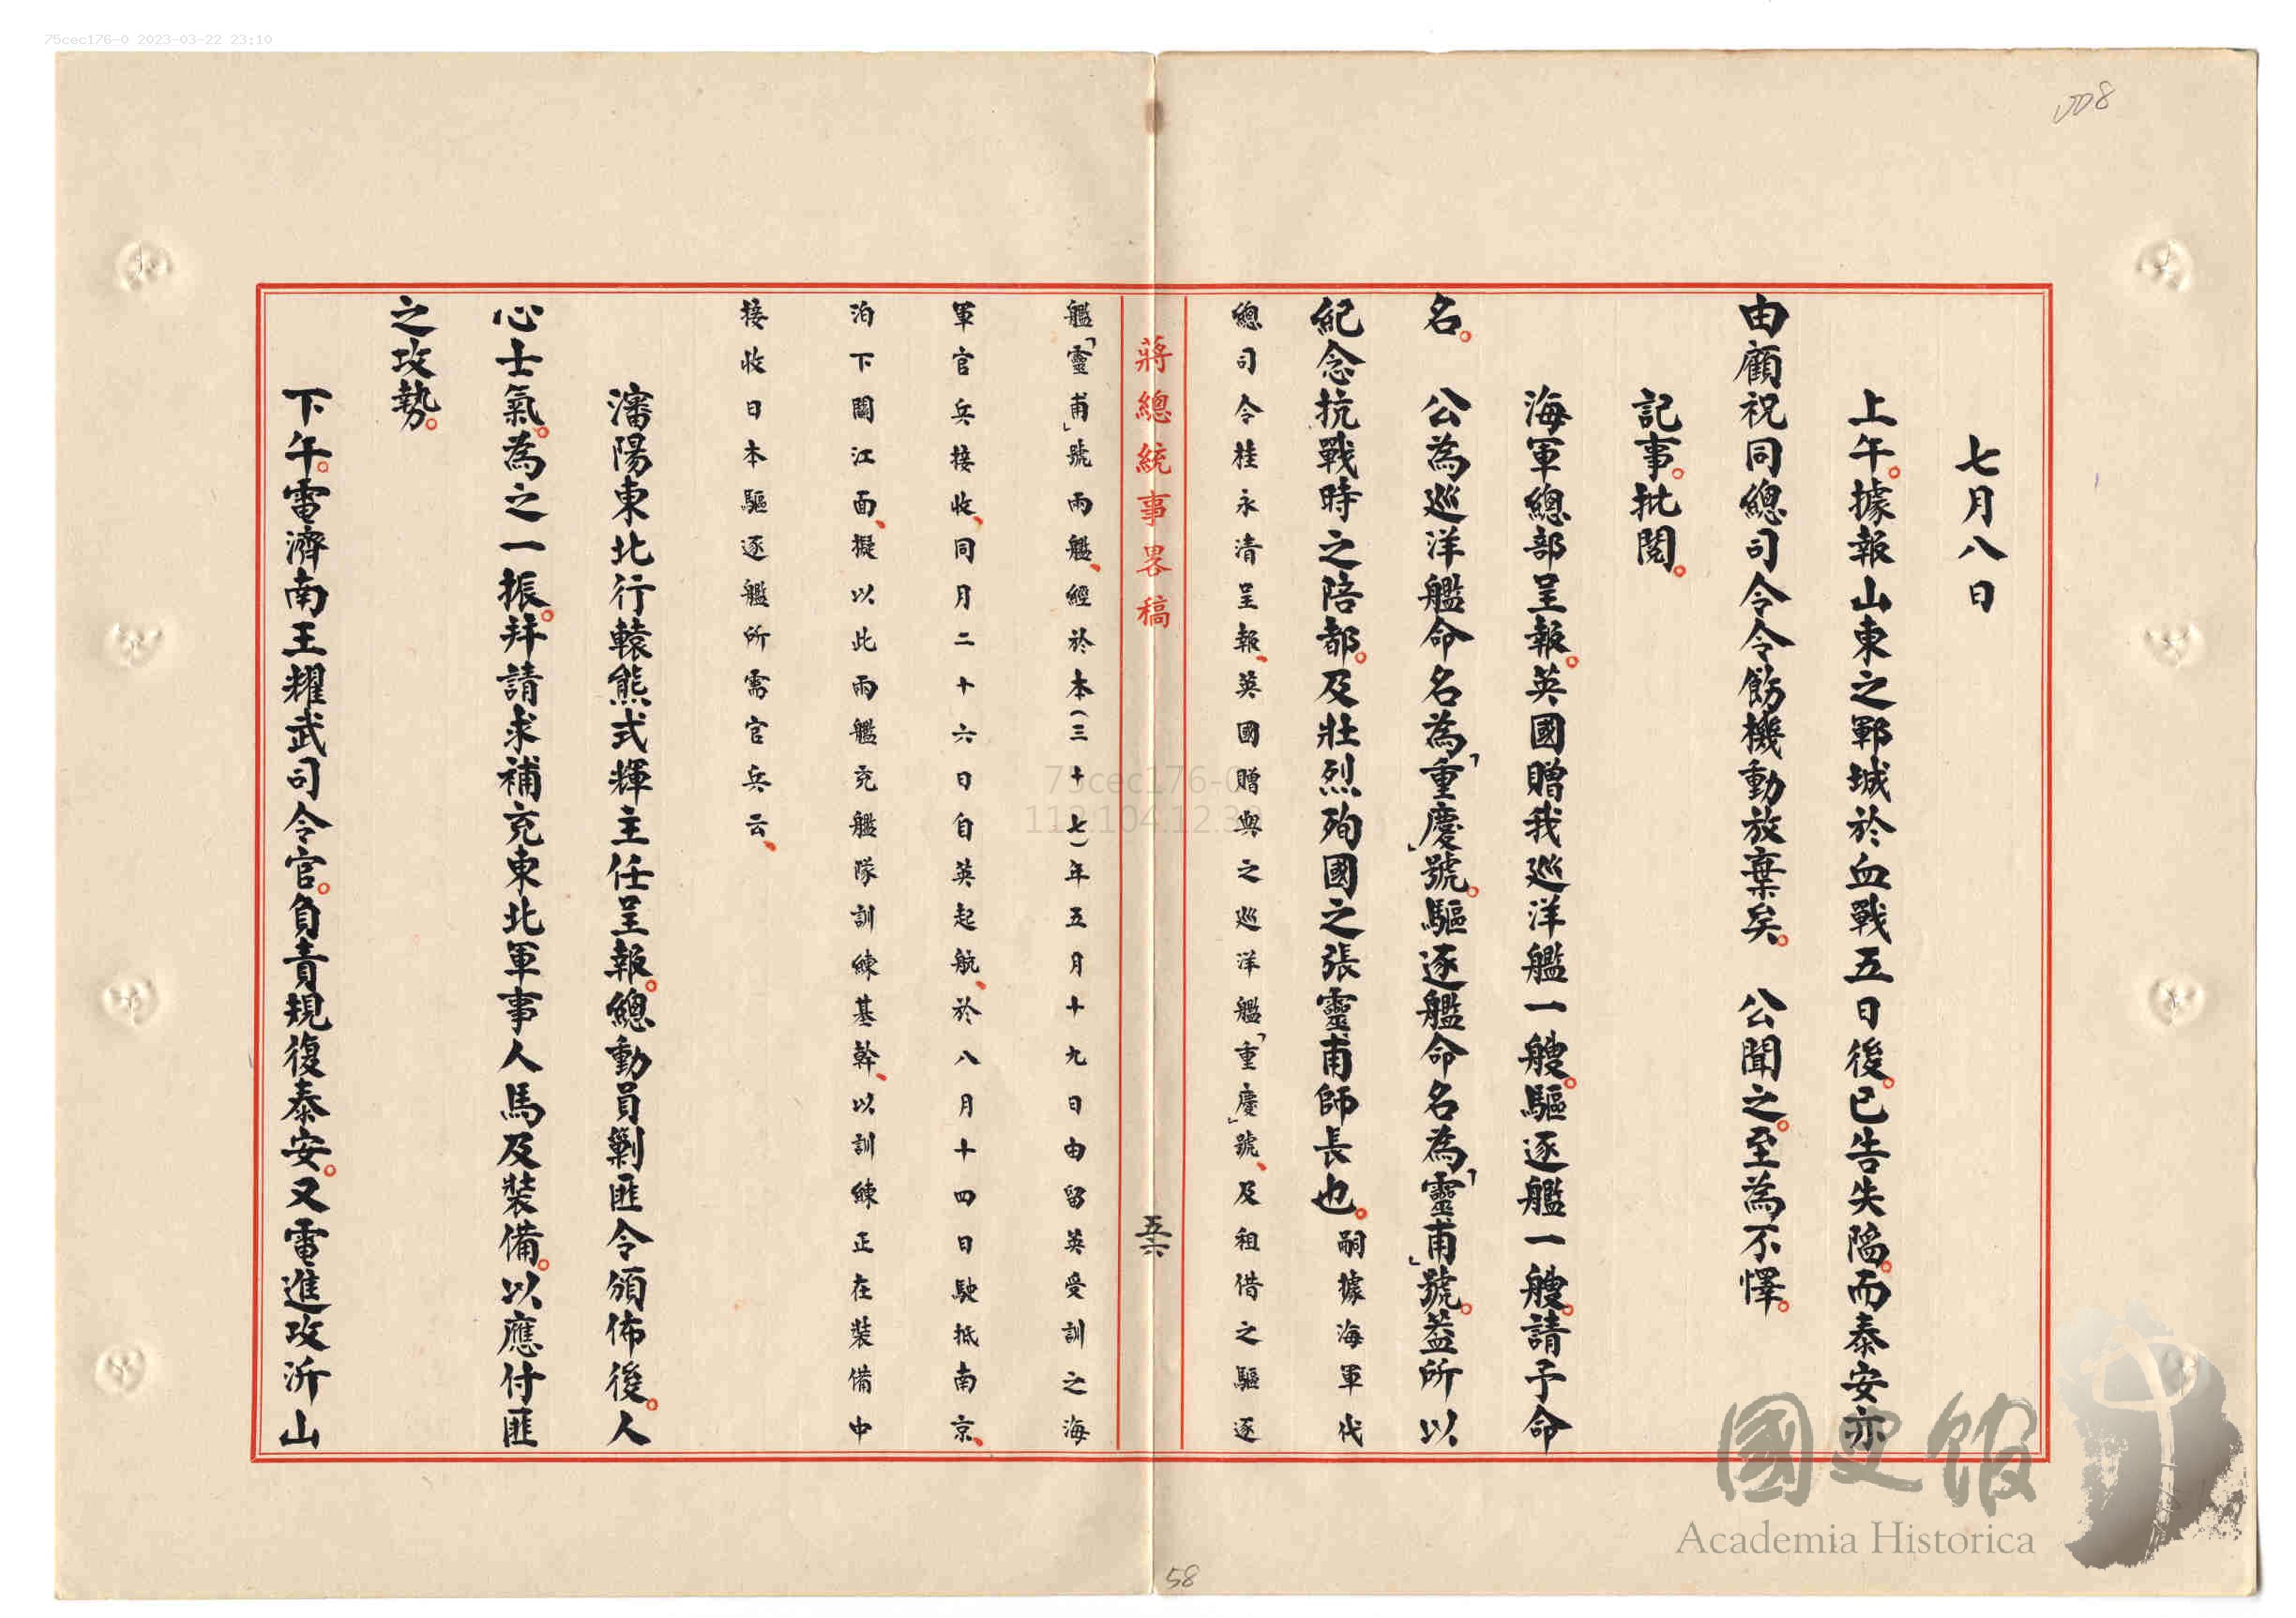 75cec176-0 2023-03-22 23:10
008
七月八日
上午。據報山東之鄆城於血戰五日後。已告失陷。而泰安亦
由顧祝同總司令令飭機動放棄矣。　公聞之。至為不懌。
記事。批閱。
海軍總部呈報。英國贈我巡洋艦一艘。驅逐艦一艘。請予命
名。　公為巡洋艦命名為「重慶」號。驅逐艦命名為「靈甫」號。蓋所以
紀念抗戰時之陪都。及壯烈殉國之張靈甫師長也。嗣據海軍代
總司令桂永清呈報、英國贈與之巡洋艦「重慶」號、及租借之驅逐
蔣總統事畧稿
五六
艦「靈甫」號兩艦、經於本(三十七)年五月十九日由留英受訓之海
軍官兵接收、同月二十六日自英起航、於八月十四日駛抵南京、
泊下關江面、擬以此兩艦充艦隊訓練基幹、以訓練正在裝備中
接收日本驅逐艦所需官兵云、
瀋陽東北行轅熊式輝主任呈報。總動員剿匪令頒佈後。人
心士氣。為之一振。并請求補充東北軍事人馬及裝備。以應付匪
之攻勢。
下午。電濟南王耀武司令官。負責規復泰安。又電進攻沂山
58
75cec176-0
112.104.12.30
國史館
Academia Historica